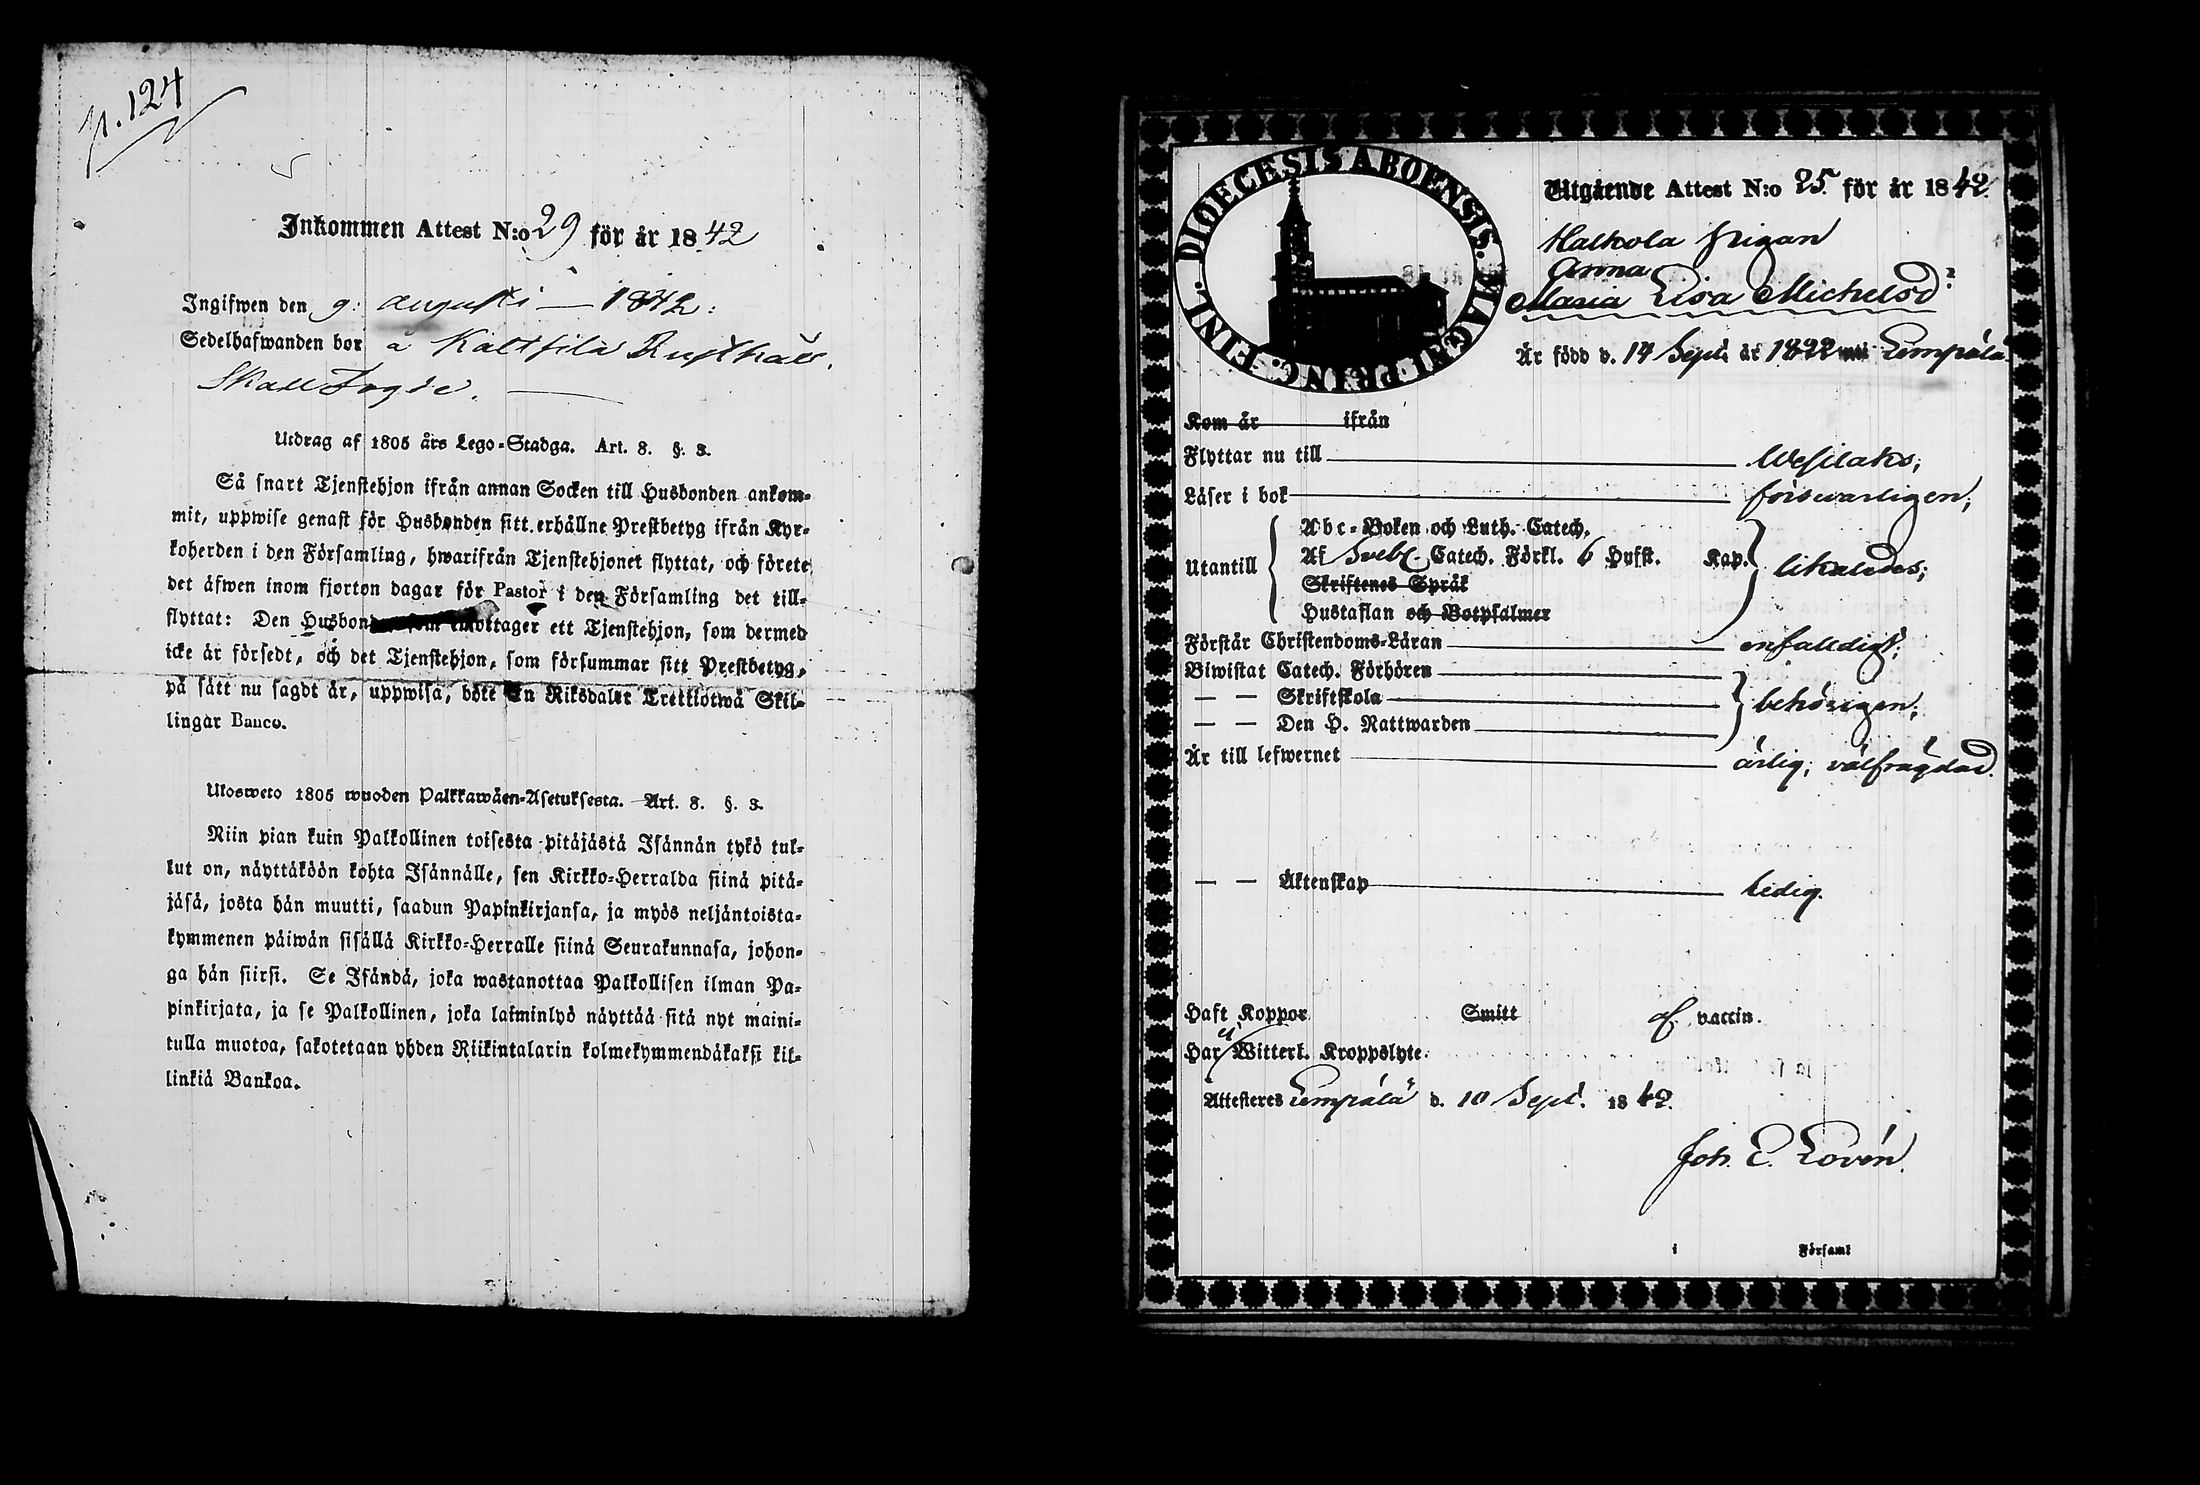 p. 124
Inkommen Attest N:o 29 för år 1842
Ingifwen den 9: augusti — 1842:
Sedelhafwanden bor å Kaltsila Rusthåll.
Skall
Utdrag af 1805 års Lego-Stadga. Art. 8. §. 3.
Så snart Tjenstehjon ifrån annan Socken till Husbonden ankom-
mit, uppwise genast för Husbonden sitt erhållne Prestbetyg ifrån Kyr-
koherden i den Församling, hwarifrån Tjenstehjonet flyttat, och förete
det äfwen inom fjorton dagar för Pastor i den Församling det till-
flyttat: Den Husbonde som emottager ett Tjenstehjon, som dermed
icke är försedt, och det Tjenstehjon, som försummar sitt Prestbetyg,
på sätt nu sagdt är, uppwisa, böte En Riksdaler Trettiotwå Skil-
lingar Banco.
Ulosweto 1805 wuoden Palkkawäen-Asetuksesta. Art. 8. §. 3.
Niin pian kuin Palkollinen toisesta pitäjästä Isännän tykö tul-
lut on, näyttäköön kohta Isännälle, sen Kirkko-Herralda siinä pitä-
jäsä, josta hän muutti, saadun Papinkirjansa, ja myös neljäntoista-
kymmenen päiwän sisällä Kirkko-Herralle siinä Seurakunnasa, johon-
ga hän siirsi. Se Isändä, joka wastanottaa Palkollisen ilman Pa-
pinkirjata, ja se Palkollinen, joka laiminlyö näyttää sitä nyt maini-
tulla muotoa, sakotetaan yhden Riikintalarin kolmekymmendäkaksi kil-
linkiä Bankoa.
DIOECESIS ABOENSIS. MAGNI PRINC. FINL.
Utgående Attest N:o 25. för år 1842.
Halkola Pigan
Anna
Maria Lisa Michelsd:r
Är född d. 14 Sept. år 1822 uti Lempälä
Kom år ifrån
Flyttar nu till Wesilaks;
Läser i bok försvarligen;
Utantill
Abc-Boken och Luth. Catech.
Af Svebl. Catech. Förkl. 6 Hufst. Kap.
Skriftenes Språk
Hustaflan och Botpsalmer
likaledes;
Förstår Christendoms-Läran enfalldigt;
Biwistat Catech. Förhören
— — Skriftskola
— — Den H. Nattwarden
behörigen;
Är till lefwernet ärlig, välfrägdad.
— — Äktenskap ledig.
Haft Koppor Smitt af vaccin.
Har ej Witterl. Kroppslyte.
Attesteres Lempälä d. 10 Sept. 1842.
Joh. E. Lovén.
i Församl